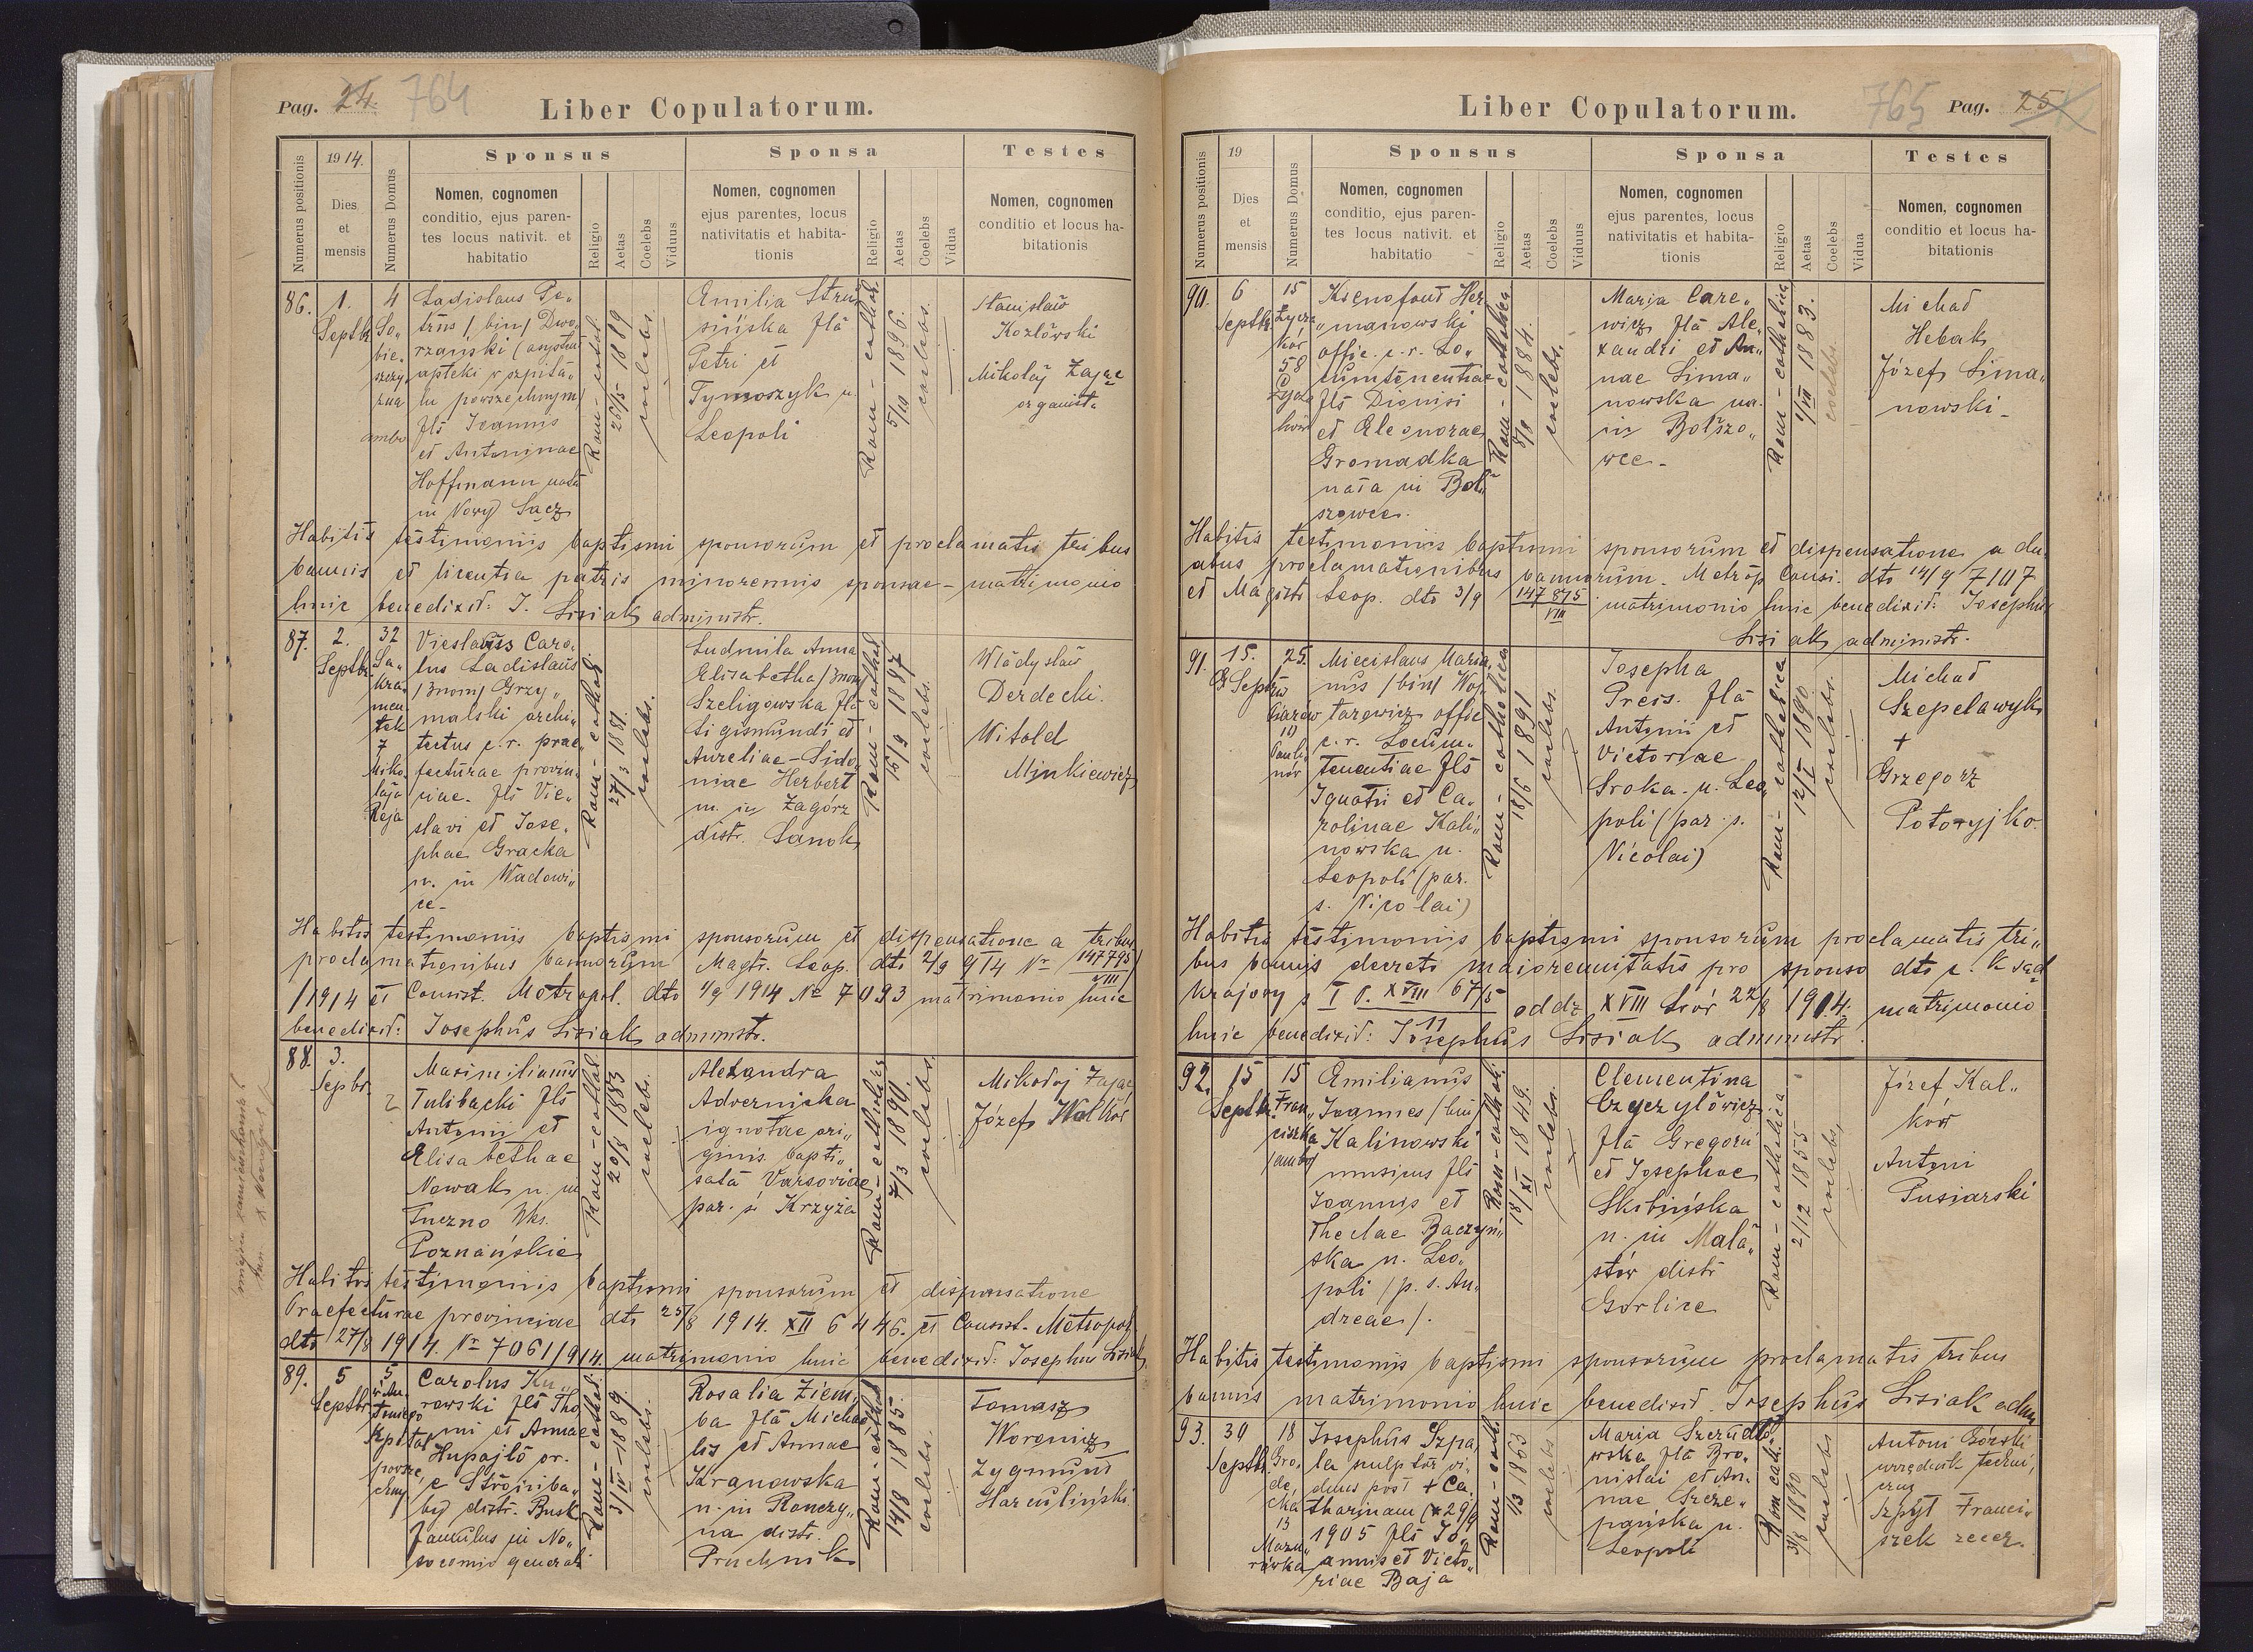 Pag. 24. 764
Liber Copulatorum.
Numerus positionis
1914.
Dies et mensis
Numerus Domus
Sponsus
Nomen, cognomen
conditio, ejus paren-
tes locus nativit. et
habitatio
Religio
Aetas
Coelebs
Viduus
Sponsa
Nomen, cognomen
ejus parentes, locus
nativitatis et habita-
tionis
Religio
Aetas
Coelebs
Vidua
Testes
Nomen, cognomen
conditio et locus ha-
bitationis
86.
1.
Septbr
4
So„
bie„
szczy„
zna
ambo
Ladislaus Pe„
trus / bin / Dwo„
rzański (
apteki w szpita„
lu powszechnym)
fls Joannis
et Antoninae
Hoffmann
in Nowy Sącz
Rom-cathol.
25/5 1889
coelebs.
Emilia Stru„
sińska fla
Petri et
Tymoszyk n.
Leopoli
Rom-cathol.
5/10 1896.
coelebs.
Stanisław
Kozłowski
Mikołaj Zając
organista
Habitis testimoniis baptismi sponsorum et proclamatis tribus
bannis et licentia patris minorennis sponsae - matrimonio
huic benedixit: J. Lisiak administr.
87.
2.
Septbr
32
Sa„
kra„
men„
tek
7
Miko„
łaja
Reja
Vieslaus Caro„
lus Ladislaus
/3nom/ Grzy„
malski archi„
tectus c.r. prae„
fecturae provin„
ciae. fls Vie„
slavi et Jose„
phae Gracka
n. in Wadowi„
ce -
Rom-cathol.
27/3 1881.
coelebs.
Ludmila Anna
Elisabetha /3nom/
Szeligowska fla
Sigismundi et
Aureliae-Sido„
niae Herbert
n. in Zagórz
distr. Sanok
Rom-cathol
15/9 1887
coelebs.
Władysław
Derdecki.
Witold
Minkiewicz
Habitis testimoniis baptismi sponsorum et dispensatione a tribus
proclamationibus bannorum Magtr. Leop. dto 2/9 914 Nr 147795/VIII
/1914 et Consist. Metropol. dto 1/9 1914 № 7093 matrimonio huic
benedixit: Josephus Lisiak administr.
88.
3.
Sepbr.
Maximilianus
Tulibacki fls
Antonii et
Elisabethae
Nowak n. in
Wks.
Poznańskie
Rom-cathol
20/8 1883
coelebs.
Alexandra
Adverniska
ignotae ori„
ginis bapti„
sata Varsoviae
par. ś Krzyża
Rom-catholica
7/3 1890.
coelebs.
Mikołaj Zając
Józef
Habitis testimoniis baptismi sponsorum et dispensatione
Praefecturae provinciae dto 25/8 1914. XII 6446. et Consist. Metropol
dto 27/8 1914. Nr 7061/914. matrimonio huic benedixit: Josephus Lisiak
89.
5
Septbr
5
Szpital
powsze„
chny
Carolus Ku„
rowski fls Tho„
mi et Annae
Hupajło or.
e
distr. Busk
famulus in No„
socomio generali
Rom-cathol.
3/IV-1889.
coelebs.
Rosalia Ziem„
ba fla Michae„
lis et Annae
Kranowska
n. in Ronczy„
na distr.
Pruchnik
Rom-cathol
14/8 1885.
coelebs.
Tomasz
Woronicz
Zygmunt
Harasliński.
Liber Copulatorum.
765 Pag. 25
Numerus positionis
19
Dies
et
mensis
Numerus Domus
Sponsus
Nomen, cognomen
conditio, ejus paren-
tes locus nativit. et
habitatio
Religio
Aetas
Coelebs
Viduus
Sponsa
Nomen, cognomen
ejus parentes, locus
nativitatis et habita-
tionis
Religio
Aetas
Coelebs
Vidua
Testes
Nomen, cognomen
conditio et locus ha-
bitationis
90.
6
Septbr.
15
Łycza
ków
58
Ksenofont Her
„manowski
offic. c.r. Lo„
cumtenentiae
fls Dionisi
et Eleonorae
Gromadka
nata in Boł„
szowce.
Rom-catholica
8/8 1884.
coelebs.
Maria Care„
wicz fla Ale„
xandri et An„
nae Sima„
nowska na.
in Bołszo„
wce -
Rom-catholica
1/VII 1883.
coelebs.
Michał
Hebak
Józef Sima„
nowski -
Habitis testimoniis baptismi sponsorum et dispensatione a du„
abus proclamationibus bannorum. Metrop. Consi. dto 14/9 7107
et Magistr Leop. dto 3/9 147875/VIII matrimonio huic benedixit: Josephus
Lisiak administr.
91.
15.
Septbr
25.
19
Pauli„
nów
Miecislaus Maria„
nus /bin/ Woj„
tarowicz offic
c.r. Locum„
tenentiae fls
Ignatii et Ca„
rolinae Kali„
nowska n.
Leopoli (par.
s. Nicolai)
Rom-catholica
18/6 1891
coelebs.
Josepha
Preis. fla
Antonii et
Victoriae
Sroka. n. Leo„
poli (par. s.
Nicolai)
Rom-catholica
12/V 1890
coelebs.
Michał
Szepelawyk
+
Grzegorz
Potoryjko.
Habitis testimoniis baptismi sponsorum proclamatis tri„
bus bannis decreto maiorennitatis pro sponso dto c. k sąd
krajowy s I P. XVIII 67/5 oddz XVIII Lwów 22/8 1914. matrimonio
11
huic benedixit: Josephus Lisiak administr.
92.
15
Septbr.
15
Fran„
ciszka
/ambo/
Emilianus
Joannes /bin/
Kalinowski
musicus fls
Joannis et
Theclae Baczyń„
ska n. Leo„
poli (p. s. An„
dreae).
Rom-cathol.
18/XI 1849.
coelebs.
Clementina
Czyczyłowicz
fla Gregorii
et Josephae
Skibińska
n. in Mala„
stów distr
Gorlice
Rom-catholica
2/12 1855
coelebs,
Józef Kal„
ków
Antoni
Pusiarski
Habitis testimoniis baptismi sponsorum proclamatis tribus
bannis matrimonio huic benedixit. Josephus Lisiak adm
93.
30
Septb.
18
Gro„
de„
cka
13
Mazu„
rówka
Josephus Szpa„
la sculptor vi„
duus post + Ca„
tharinam (*29/9
1905 fls Jo„
annis et Victo„
riae Baja
Rom-cath.
1/3 1863
coelebs
Maria Szczudło„
wska fla Bro„
nislai et An„
nae Szcze„
pańska n.
Leopoli
Rom cath.
3/8 1890
coelebs
Antoni Górski
urzędnik techni„
czny
Szpyt Franci„
szek zecer.